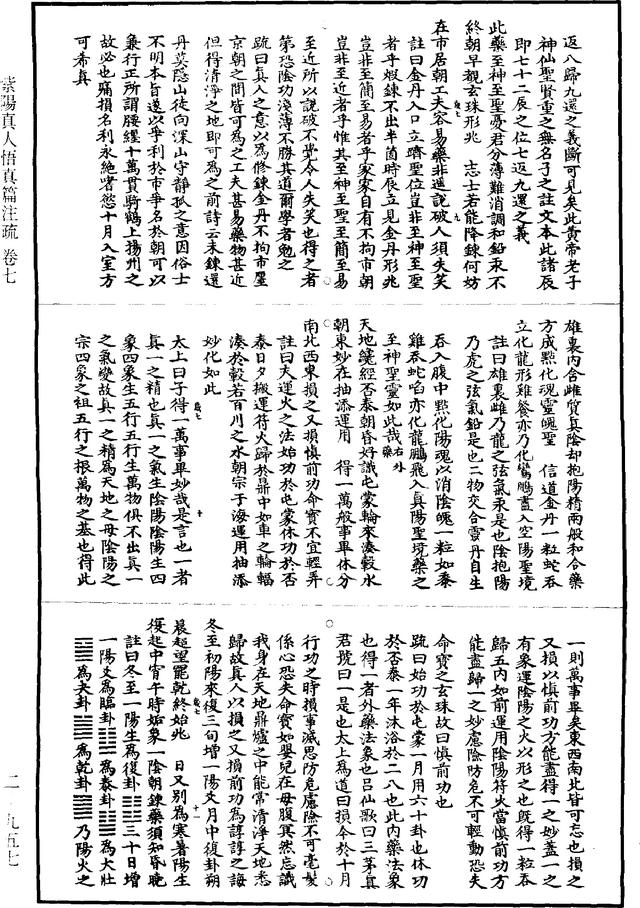 返八歸九還之義斷可見矣此黃帝老子
神仙聖賢重之無名子之註文本此諸辰
即七十二辰之位七返九還之義
此藥至神至聖憂君分薄難消調和鉛汞不
終朝早覩玄珠形兆　志士若能降鍊何妨
在市居朝工夫容易藥非遙說破人須失笑
註曰金丹入口立躋聖位豈非至神至聖
者乎煆鍊不出半箇時辰立見金丹形兆
豈非至簡至易者乎家家自有不拘市朝
豈非至近者乎惟其至神至聖至簡至易
至近所以說破不覺令人失笑也得之者
第恐陰功淺薄不勝其道爾學者勉之
疏曰真人之意以為修鍊金丹不拘市𢌅
京朝之間皆可為之工夫甚易藥物甚近
但得清淨之地即可為之前詩云未鍊還
丹莫隱山徒向深山守靜孤之意因俗士
不明本旨遂以爭利於市爭名於朝可以
兼行正所謂腰纏十萬貫騎鶴上揚州之
故必也痛損名利永絕眷慾十月入室方
可希真
雄裏內含雌質真陰却抱陽精兩般和合藥
方成點化魂靈魄聖　信道金丹一粒蛇吞
立化龍形雞餐亦乃化鸞鵬盡入空陽聖境
註曰雄裏雌乃龍之弦氣汞是也陰抱陽
乃虎之弦氣鉛是也二物交合靈丹自生
吞入腹中點化陽魂以消陰魄一粒如黍
雞吞蛇啗亦化龍鵬飛入真陽聖境藥之
至神聖靈如此哉右外藥
天地纔經否泰朝昏好識屯蒙輪來湊轂水
朝東妙在抽添運用　得一萬般事畢休分
南北西東損之又損慎前功命寶不宜輕弄
註曰夫運火之法始功於屯蒙休功於否
泰日夕搬運符火歸於鼎中如車之輪輻
湊於轂若百川之水朝宗于海運用抽添
妙化如此
太上曰子得一萬事畢妙哉是言也一者
真一之精也真一之氣生陰陽陰陽生四
象四象生五行五行生萬物俱不出真一
之氣變故真一之精為天地之母陰陽之
宗四象之祖五行之根萬物之基也得此
一則萬事畢矣東西南北皆可忘也損之
又損以慎前功方能盡得一之妙蓋一之
有象運陰陽之火以形之也既得一粒吞
歸五內如前運用陰陽符火當慎前功方
能盡歸一之妙慮險防危不可輕動恐失
命寶之玄珠故曰慎前功也
疏曰始功於屯蒙一月用六十卦也休功
於否泰一年沐浴於二八也此內藥法象
也得一者外藥法象也呂仙歌曰三茅真
君號曰一是也太上為道曰損今於十月
行功之時損事滅思防危慮險不可毫髮
係心恐失命寶如嬰兒在母腹冥然忘識
我身在天地鼎爐之中能常清淨天地悉
歸故真人以損之又損前功為諄諄之誨
冬至初陽來復三旬增一陽爻月中復卦朔
晨超望罷乾終始兆　日又別為寒暑陽生
復起中宵午時姤象一陰朝鍊藥須知昏曉
註曰冬至一陽生為復卦䷗三十日增
一陽爻為臨卦䷒為泰卦䷊為大壯
䷡為夬卦䷪為乾卦䷀乃陽火之
紫陽真人悟真篇注疏　卷七
二－九五七